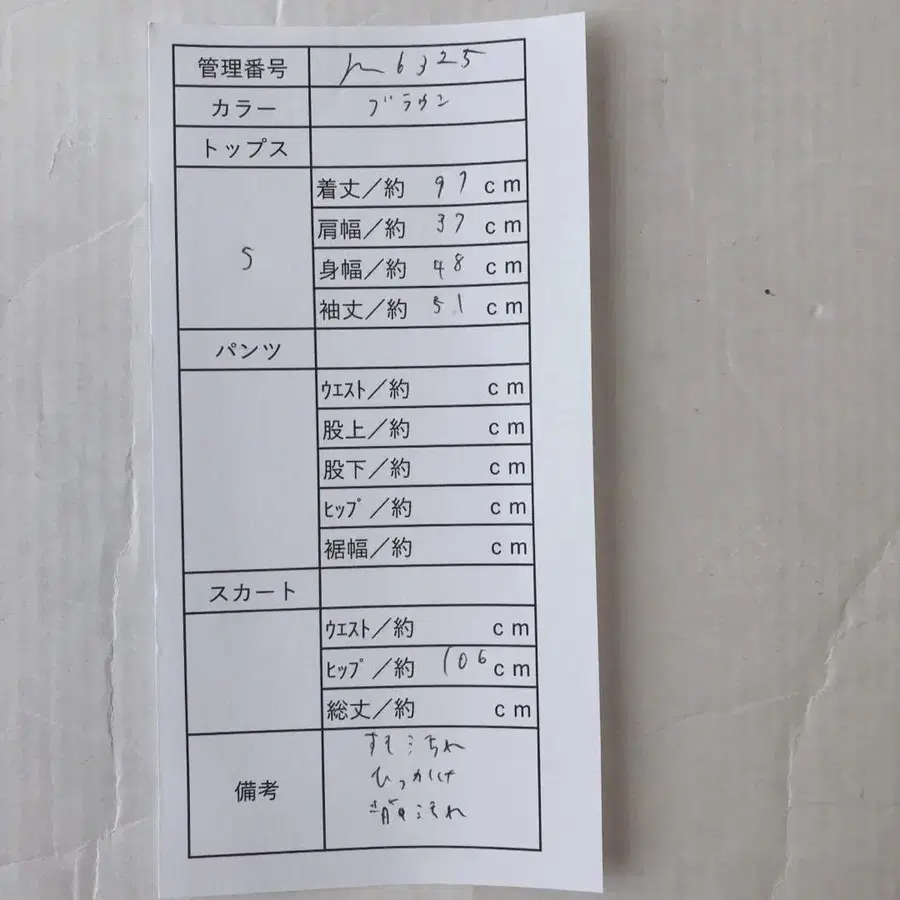 管理番号 h6325
カラー ブラウン
トップス
S
着丈／約 97 cm
肩幅／約 37 cm
身幅／約 48 cm
袖丈／約 51 cm
パンツ
ｳｴｽﾄ／約 cm
股上／約 cm
股下／約 cm
ﾋｯﾌﾟ／約 cm
裾幅／約 cm
スカート
ｳｴｽﾄ／約 cm
ﾋｯﾌﾟ／約 106 cm
総丈／約 cm
備考
ひっかけ